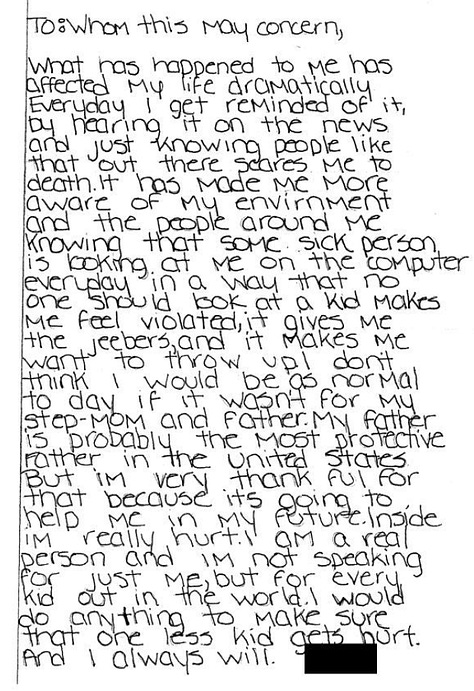 TO: Whom this May concern,
What has happened to Me has
affected My life dramatically
Everyday I get reminded of it,
by hearing it on the news
and just knowing people like
that out there scares Me to
death. It has made Me More
aware of My envirnment
and the people around Me
Knowing that some sick person
is looking at Me on the computer
everyday in a way that no
one should look at a kid Makes
Me feel violated, it gives Me
the jeebers, and it Makes Me
want to throw up I don't
think I would be as norMal
to day if it wasn't for My
step-MOM and father. My father
is probably the Most protective
father in the united states
But iM very thank ful for
that because its going to
help Me in My future. Inside
iM really hurt. I aM a real
person and iM not speaking
for just Me, but for every
kid out in the world. I would
do anything to Make sure
that one less kid gets hurt.
And I always will.